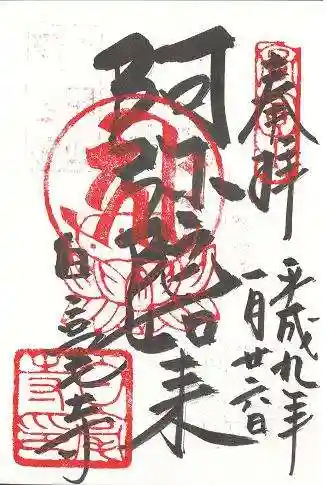 奉拝
平成九年
一月廿六日
阿弥陀如来
白毫寺